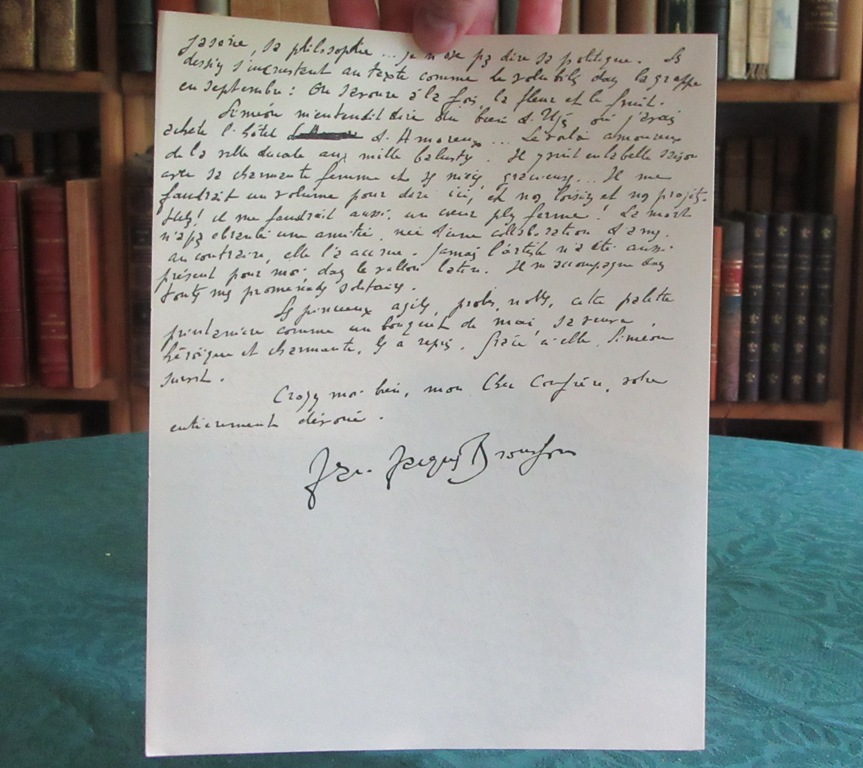 sa philosophie ... je n'ose pas dire sa politique. Ses
dessins s'incrustent au texte comme le volubilis dans la grappe
en septembre : On savoure à la fois la fleur et le fruit.
Siméon m'entendit dire du bien d'Uzès, où j'avais
acheté l'hôtel d'Amoreux ... Le voilà amoureux
de la ville ducale aux mille balustres. Il y vint en la belle saison
avec sa charmante femme et ses nièces gracieuses... Il me
faudrait un volume pour dire ici, et nos loisirs et nos projets.
Hélas ! il me faudrait aussi, un cœur plus ferme ! La mort
n'a pas ébranlé une amitié, née d'une collaboration d'âmes.
au contraire, elle l'a accrue. Jamais l'artiste n'a été aussi
présent pour moi dans le vallon latin. Il m'accompagne dans
toutes mes promenades solitaires.
Ses pinceaux agiles, probes, nobles, cette palette
printanière comme un bouquet de mai, sa veuve,
héroïque et charmante, les a repris. Grâce à elle, Siméon
survit.
Croyez moi bien, mon Cher Confrère, votre
entièrement dévoué.
Jean-Jacques Brousson